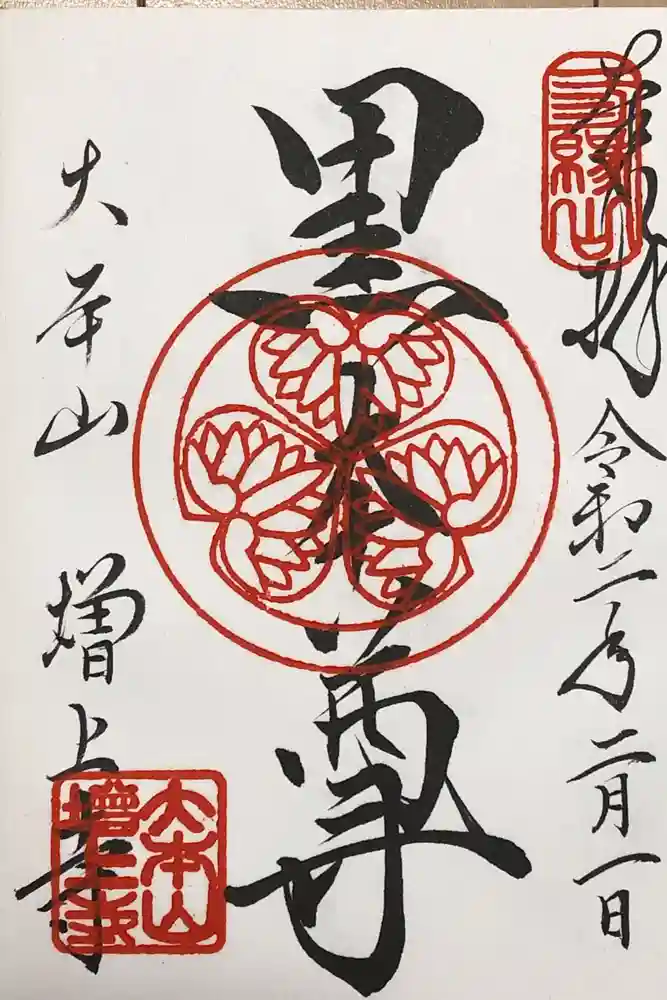 奉拝
令和二年二月一日
三縁山
黒本尊
大本山
増上寺
大本山
増上寺